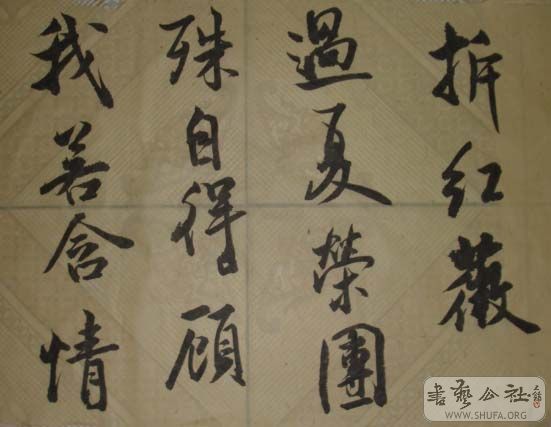 拆红薇
過夏榮團
殊自得顾
我若含情
書藝公社
WWW.SHUFA.ORG